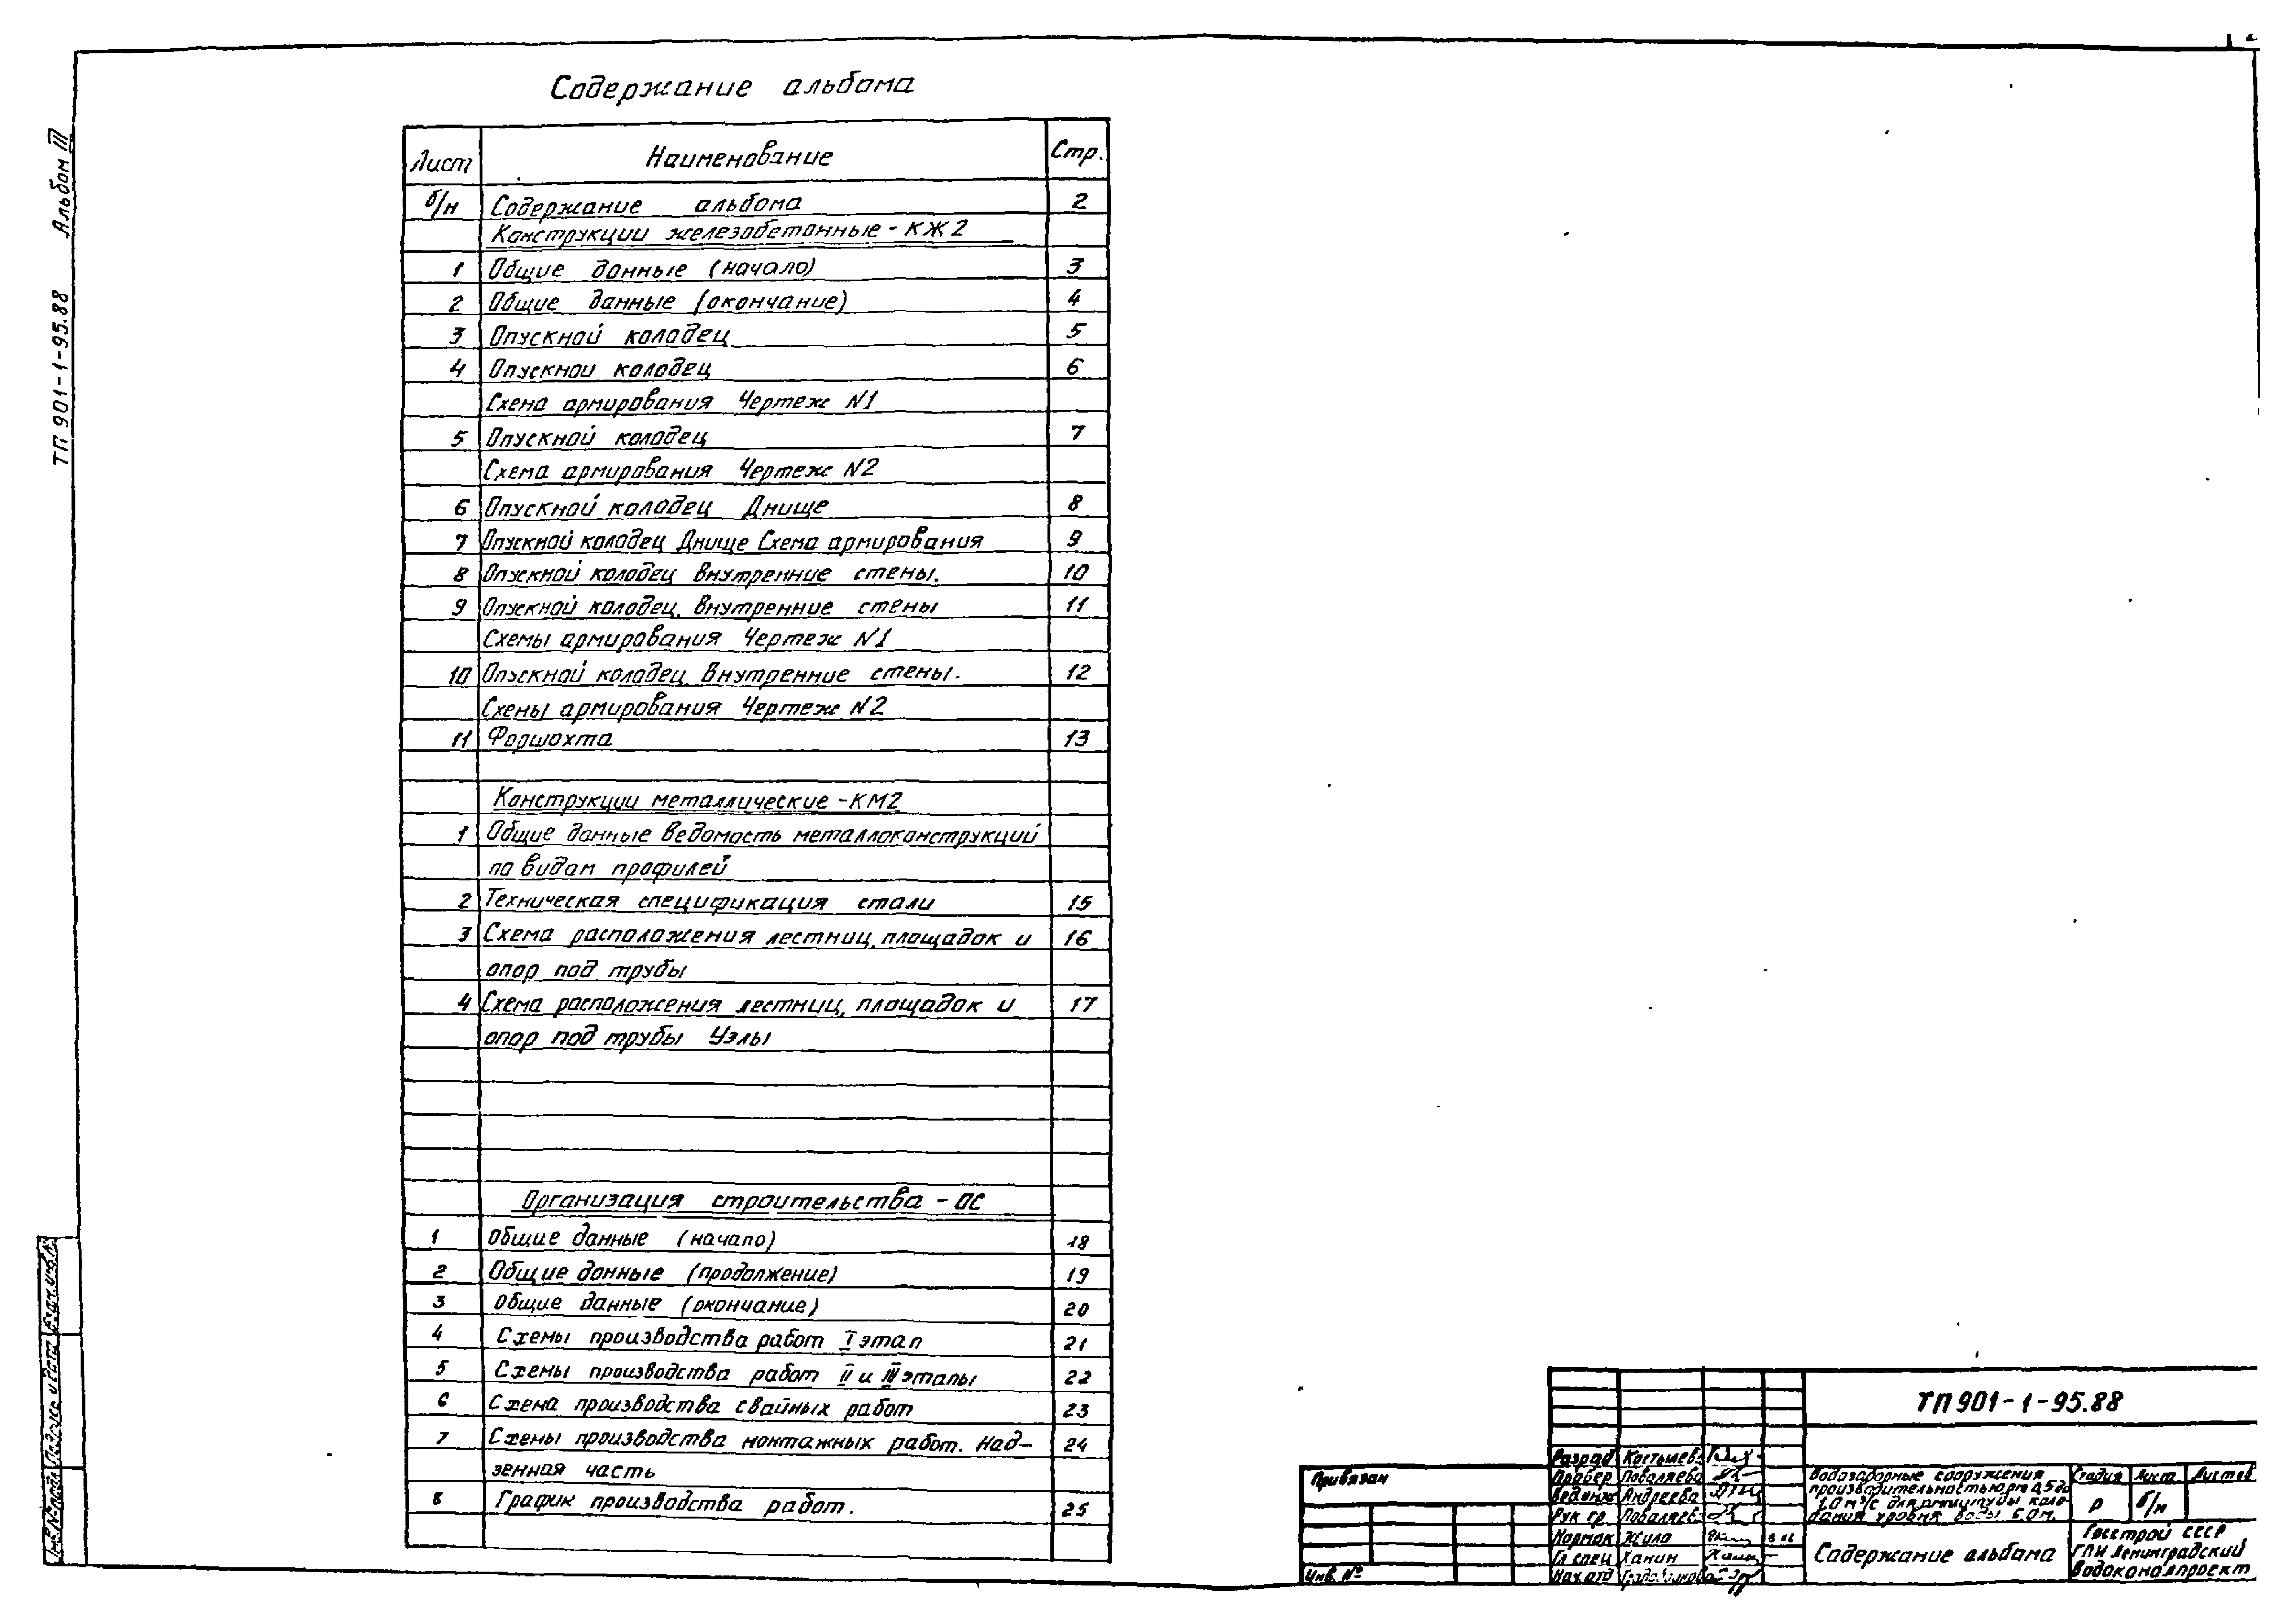 2
Альбом III
ТП 901-1-95.88
Содержание альбома
Лист Наименование Стр.
б/н Содержание альбома 2
Конструкции железобетонные - КЖ2
1 Общие данные (начало) 3
2 Общие данные (окончание) 4
3 Опускной колодец 5
4 Опускной колодец 6
Схема армирования Чертеж N1
5 Опускной колодец 7
Схема армирования Чертеж N2
6 Опускной колодец Днище 8
7 Опускной колодец Днище Схема армирования 9
8 Опускной колодец Внутренние стены. 10
9 Опускной колодец. Внутренние стены 11
Схемы армирования Чертеж N1
10 Опускной колодец. Внутренние стены. 12
Схемы армирования Чертеж N2
11 Форшахта 13
Конструкции металлические - КМ2
1 Общие данные Ведомость металлоконструкций
по видам профилей
2 Техническая спецификация стали 15
3 Схема расположения лестниц, площадок и 16
опор под трубы
4 Схема расположения лестниц, площадок и 17
опор под трубы Узлы
Организация строительства - ОС
1 Общие данные (начало) 18
2 Общие данные (продолжение) 19
3 Общие данные (окончание) 20
4 Схемы производства работ I этап 21
5 Схемы производства работ II и III этапы 22
6 Схема производства свайных работ 23
7 Схемы производства монтажных работ. Над- 24
земная часть
8 График производства работ. 25
ТП 901-1-95.88
Привязан
Инв. №
Разраб Костылев
Провер Поваляева
Вед.инж Андреева
Рук гр. Поваляев
Нормок Жила
Гл спец Ханин
Нач.отд
Водозаборные сооружения
производительностью от 0,5 до
1,0 м³/с для амплитуды коле-
бания уровня воды 6,0 м.
Стадия Лист Листов
Р б/н
Содержание альбома
Госстрой СССР
ГПИ Ленинградский
Водоканалпроект
Инв.№ подл Подпись и дата Взам.инв.№